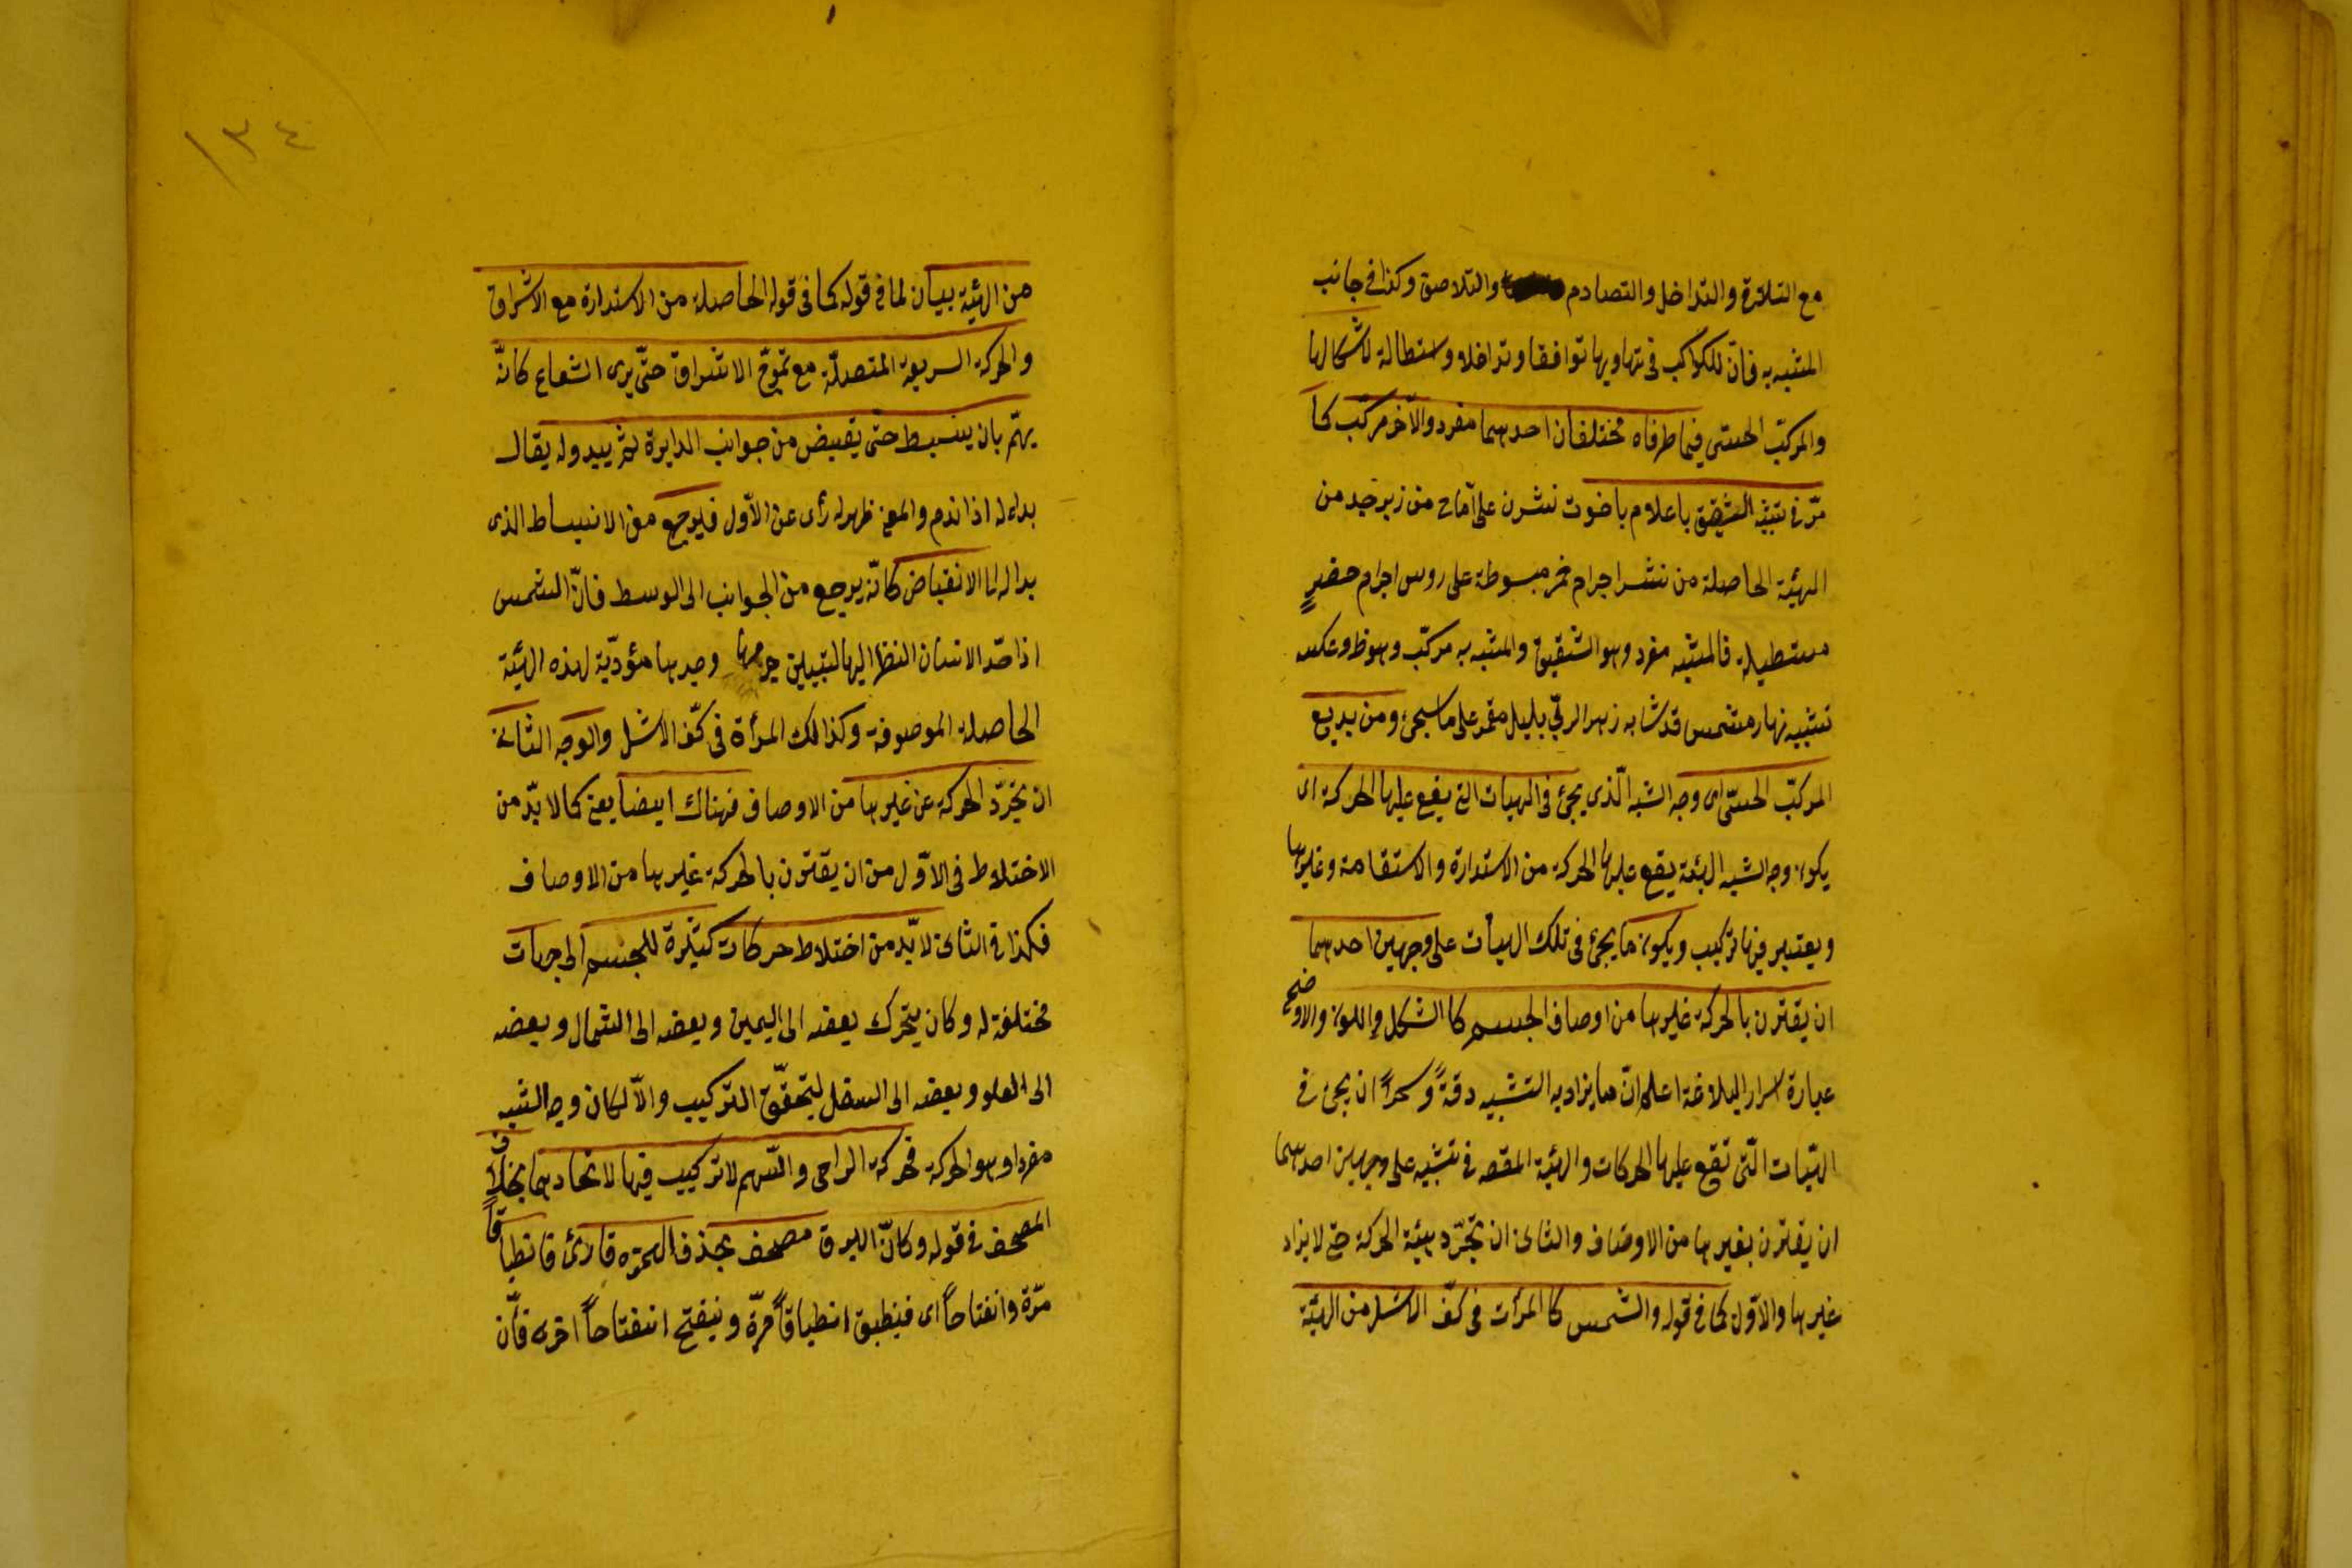 مع التلازق والتداخل والتصادم والتلاصق وكذا في جانب
المشبه به فانّ للكواكب في تهاويها توافقا وتداخلا واستطالة لاشكالها
والمركّب الحسّى فيما طرفاه مختلفان احدهما مفرد والآخر مركّب كما
مرّ في تشبيه الشقيق باعلام ياقوت نشرن على رماح من زبرجد من
الهيئة الحاصلة من نشر اجرام حمر مبسوطة على روس اجرام خضر
مستطيلة فالمشبه مفرد وهو الشقيق والمشبه به مركّب وهو ظ وعكسه
تشبيه نهار مشمس قد شابه زهر الربى بليل مقمر على ما سيجئ ومن بديع
المركّب الحسّى اى وجه الشبه الّذى يجئ في الهيات التى يقع عليها الحركة اى
يكون وجه الشبه الهيئة يقع عليها الحركة من الاستدارة والاستقامة وغيرها
ويعتبر فيها تركيب ويكون ما يجئ في تلك الهيأت على وجهين احدهما
ان يقترن بالحركة غيرها من اوصاف الجسم كالشكل واللون والاوضح
عبارة اسرار البلاغة اعلم انّ مما يزاد به التشبيه دقةً وسحراً ان يجئ في
الهيّات الّتى تقع عليها الحركات والهيئة المقصه في تشبيه على وجهين احدهما
ان يقترن بغيرها من الاوصاف والثانى ان تجرّد هيئة الحركة حتى لا يزاد
غيرها والاوّل كما في قوله والشمس كالمرأت في كفّ الاشل من الهيئة
١٣٤
من الهيئة بيان لما في قوله كما في قوله الحاصلة من الاستدارة مع الاشراق
والحركة السريعة المتصلة مع تموّج الاشراق حتّى يرى الشعاع كانّه
يهمّ بان ينبسط حتى يفيض من جوانب الدايرة ثم يبدو له يقال
بدا له اذا ندم والمعنى ظهر له رأى عن الاوّل فيرجع من الانبساط الذى
بدا له الى الانقباض كانّه يرجع من الجوانب الى الوسط فانّ الشمس
اذا حدّ الانسان النظر اليها ليتبيّن جرمها وجدها مؤدّية لهذه الهيئة
الحاصلة الموصوفة وكذالك المرأة في كفّ الاشل والوجه الثانى
ان تجرّد الحركة عن غيرها من الاوصاف فهناك ايضا يعنى كما لا بدّ من
الاختلاط في الاوّل من ان يقترن بالحركة غيرها من الاوصاف
فكذا في الثانى لا بّد من اختلاط حركات كثيرة للجسم الى جهات
مختلفة له وكان يتحرك بعضه الى اليمين وبعضه الى الشمال وبعضه
الى العلو وبعضه الى السفل ليتحقّق التركيب والّا لكان وجه الشبه
مفردا وهو الحركة فحركة الراحى والسّهم لا تركيب فيها لاتحادهما بخلاف
المصحف في قوله وكانّ البرق مصحف بحذف الهمزه قارئ فانطباقاً
مرّة وانفتاحاً اى فينطبق انطباقاً مرّة وينفتح انفتاحاً اخرى فأنّ